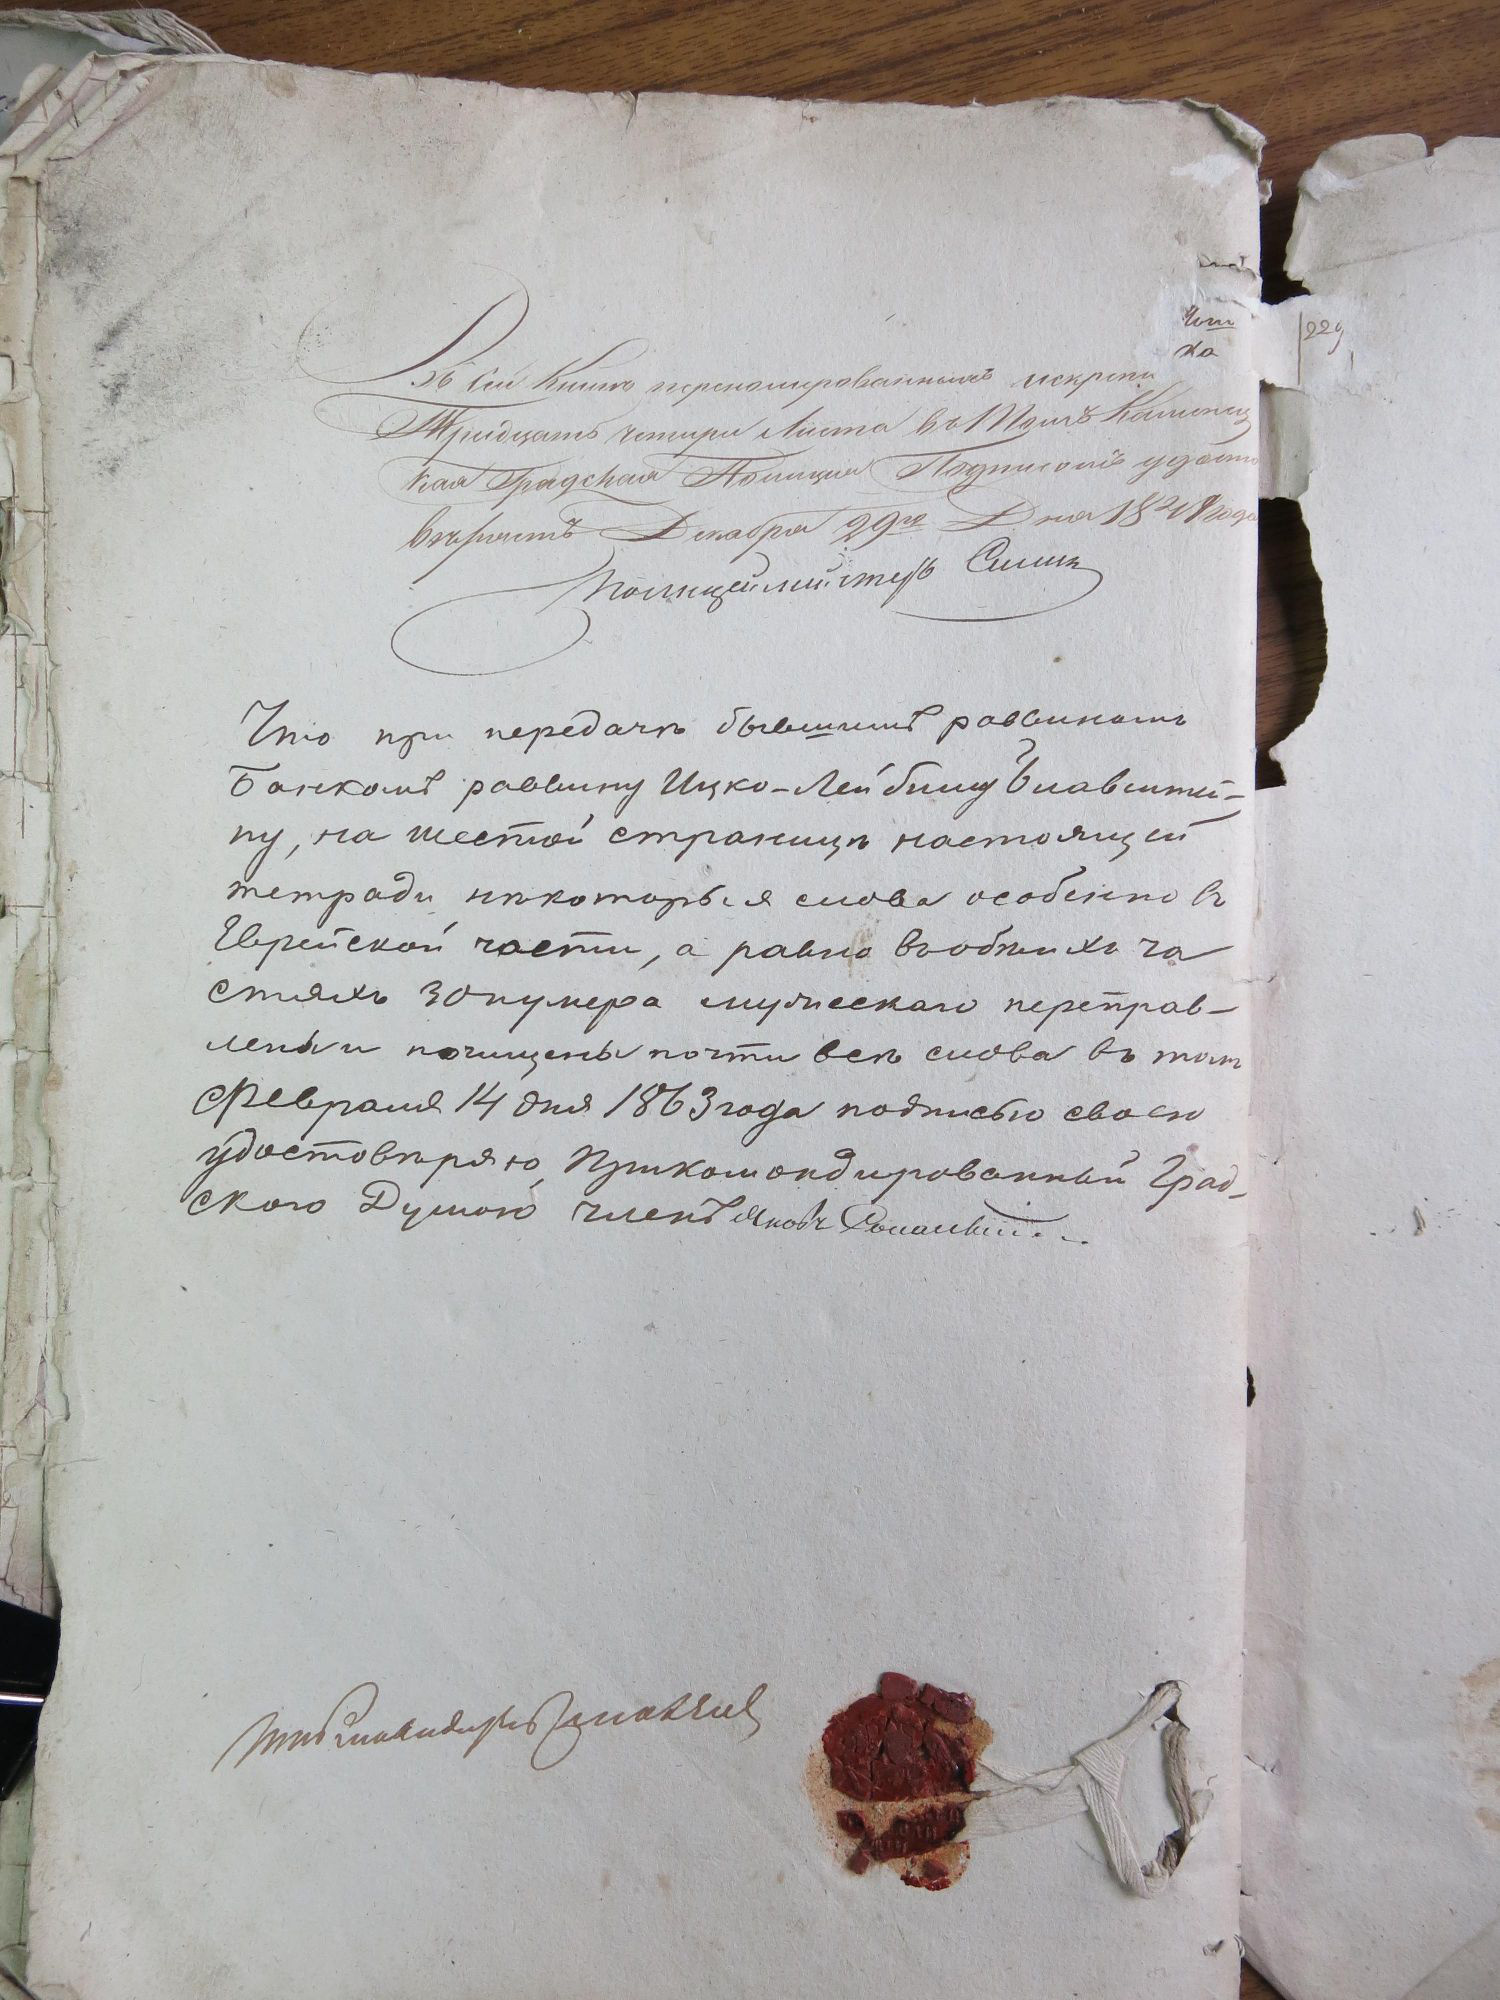 Въ сей Книге переномированныхъ искрепл
Тридцать четири Листа въ томъ Каменец
кая Градская Полиция Подписомъ удосто
въряетъ Декабря 29го Дня года
Полицеймистеръ
229
Что при передачѣ бывшимъ раввиномъ
Банкомъ раввину Ицко-Лейбишу
ну, на шестой страницѣ настоящей
тетради нѣкоторыя слова особенно въ
Еврейской части, а равно въ обѣихъ ча
стяхъ 30 нумера мужескаго переправ-
лены и почищены почти всѣ слова въ томъ
Февраля 14 дня 1863 года подписью своею
удостовѣряю, Прикомандированный Град-
скою Думою членъ Яковъ